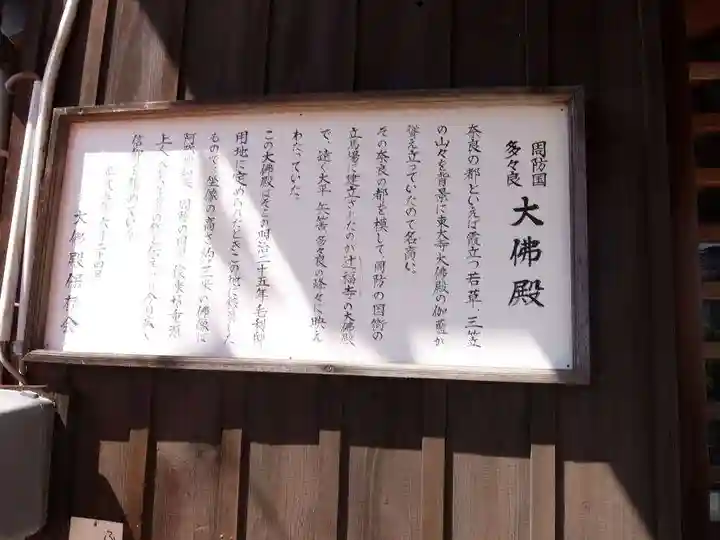 周防国
多々良
大佛殿
奈良の都といえば霞立つ若草、三笠
の山々を背景に東大寺大佛殿の伽藍が
聳え立っていたので名高い。
その奈良の都を模して周防の国衙の
立馬場に建立されたのが辻福寺の大佛殿
で、遠く太平、矢筈、多々良の峰々に映え
わたっていた。
この大佛殿こそこの明治二十五年毛利邸
用地に定められたときこの地に移
もので、坐像の高さ約三米の佛像は
阿弥 周防の国 俊乗坊重源
上人
信仰を集めている。
六月二十四日
大佛殿保存会